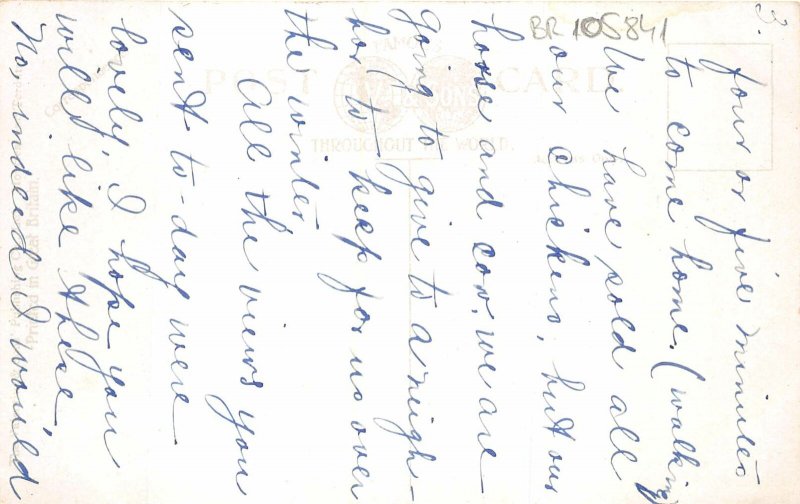 3.
BR 105841
four or five minutes
to come home. (walking
We have sold all
our chickens, but our
horse and cow, we are
going to give to a neigh-
bor to keep for us over
the winter.
All the views you
sent to-day were
lovely, I hope you
will like these
No, indeed I would
POST CARD
FAMOUS
THROUGHOUT THE WORLD.
Printed in Great Britain.